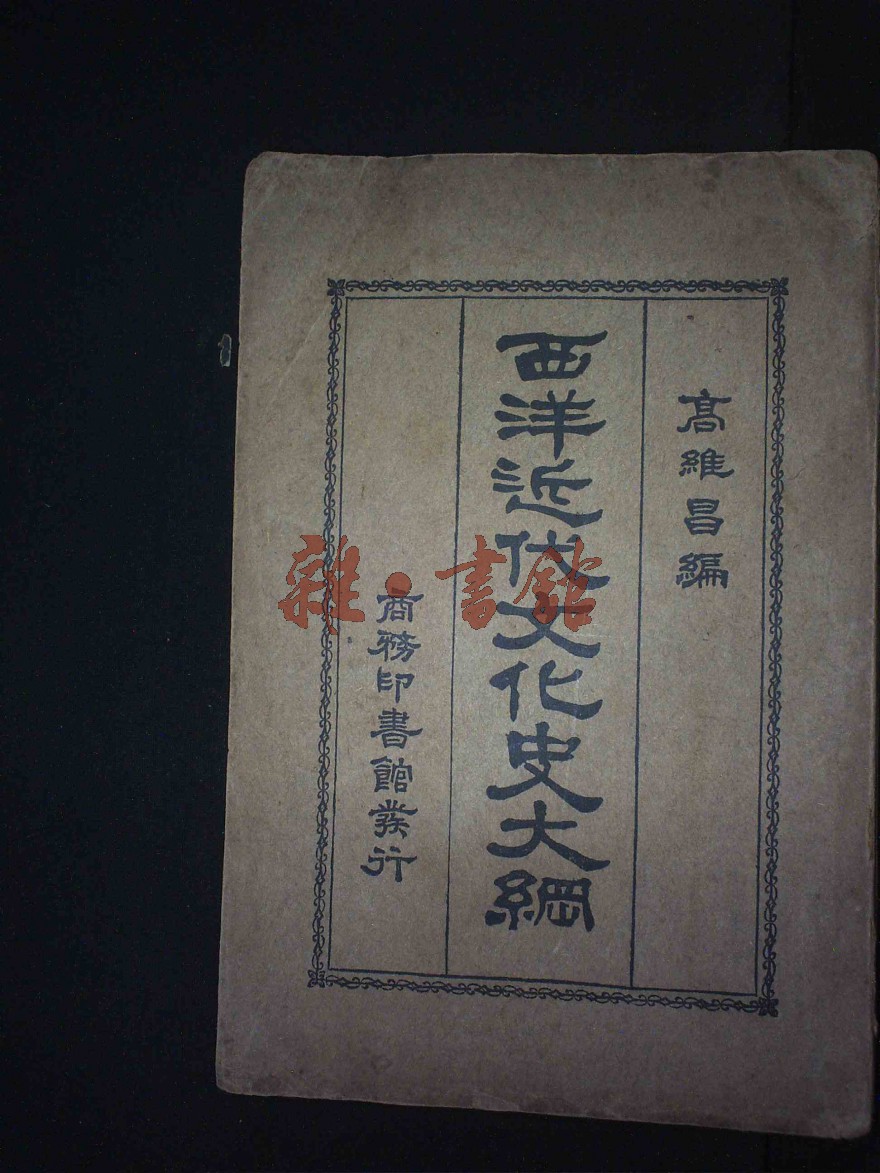 高維昌編
西洋近代文化史大綱
商務印書館發行
雜·書館